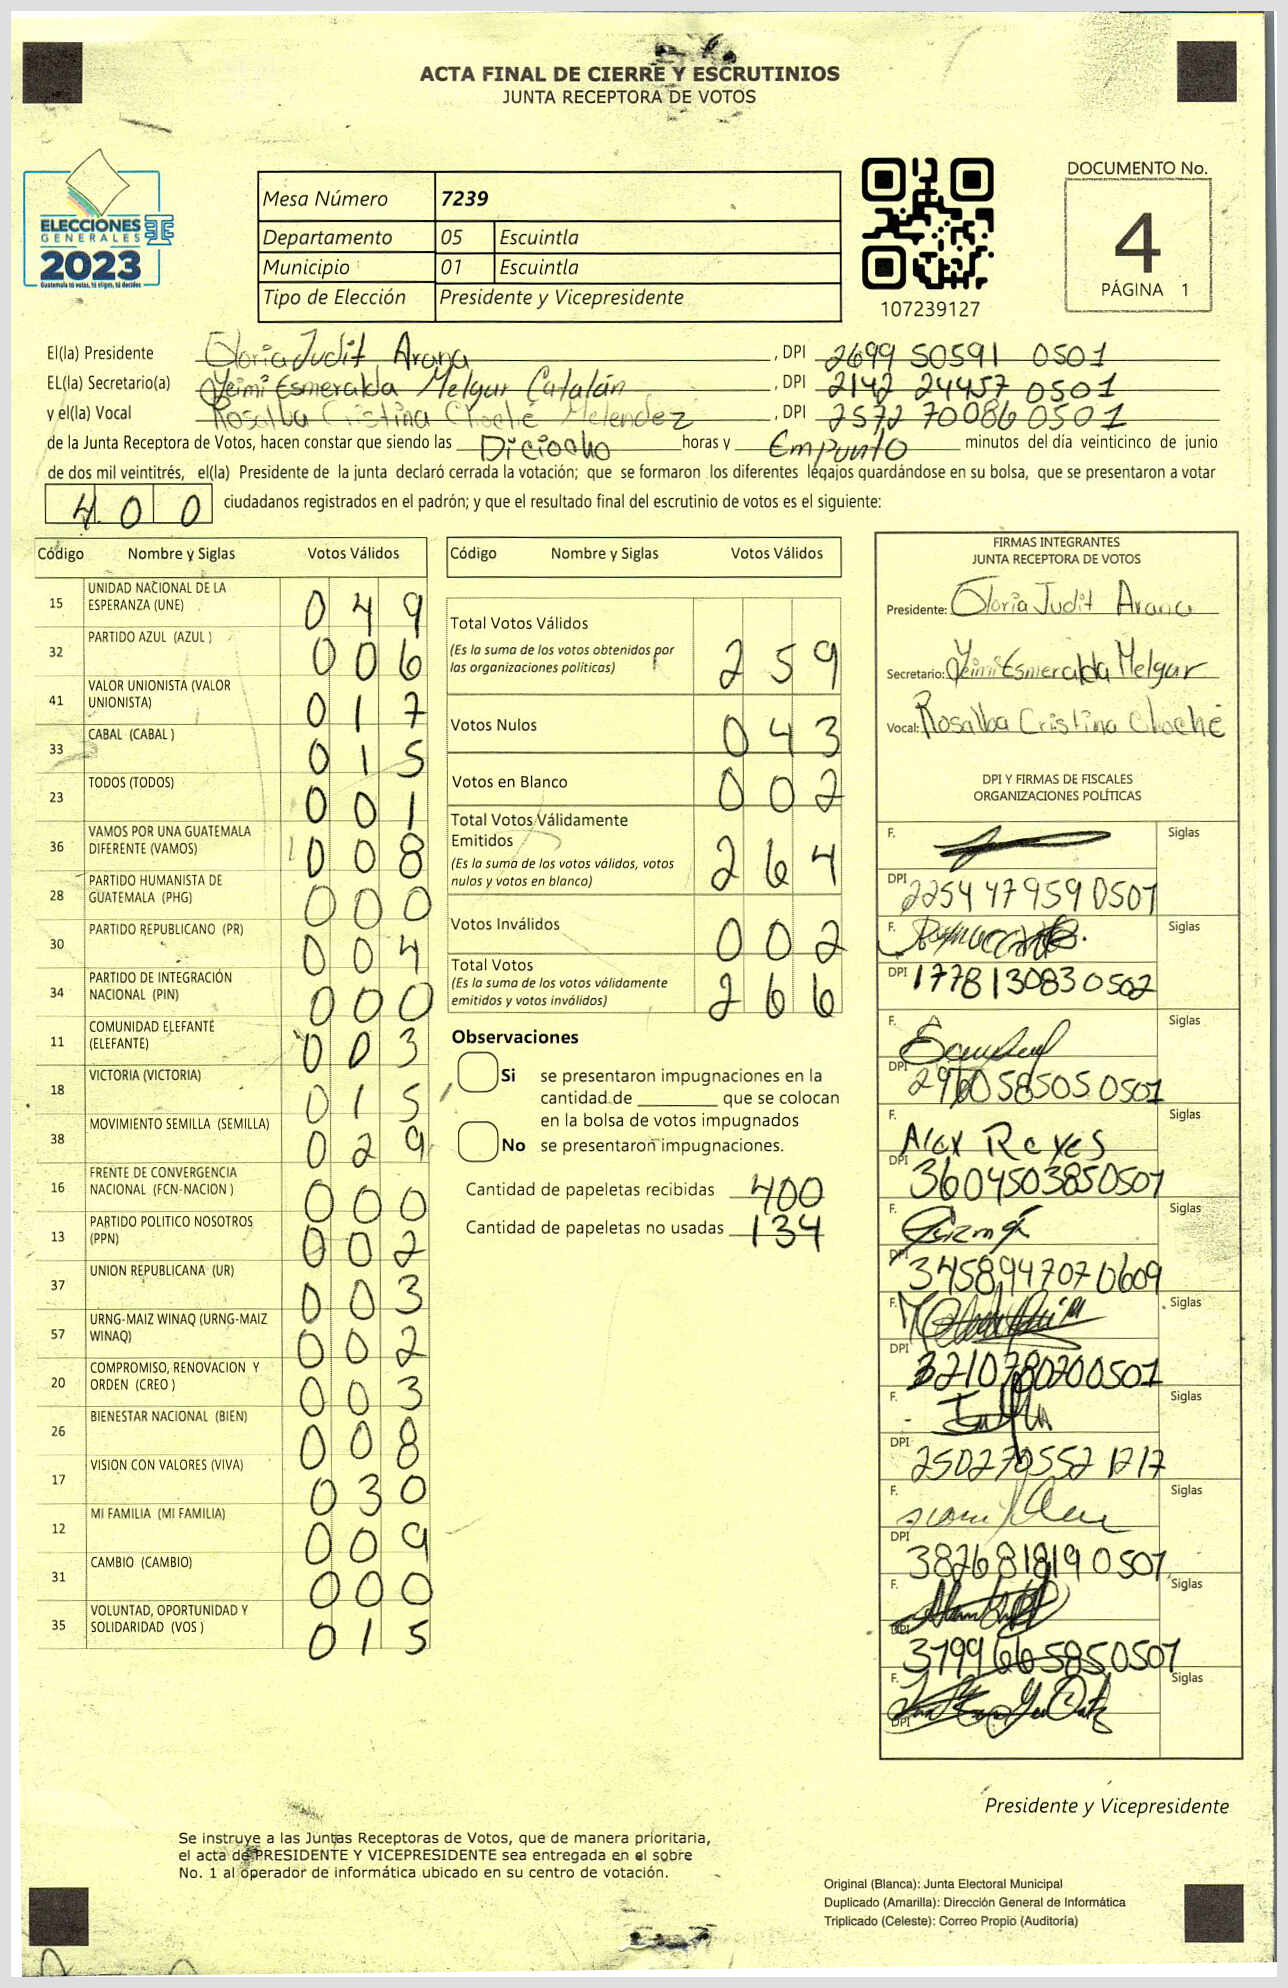 ACTA FINAL DE CIERRE Y ESCRUTINIOS
JUNTA RECEPTORA DE VOTOS
ELECCIONES
GENERALES
2023
Guatemala tú votas, tú eliges, tú decides
Mesa Número 7239
Departamento 05 Escuintla
Municipio 01 Escuintla
Tipo de Elección Presidente y Vicepresidente
107239127
DOCUMENTO No.
4
PÁGINA 1
El(la) Presidente Gloria Judit Arana , DPI 2699 50591 0501
EL(la) Secretario(a) Yeimi Esmeralda Melgar Catalán , DPI 2142 24457 0501
y el(la) Vocal Rosalba Cristina Cloché Melendez , DPI 2572 70086 0501
de la Junta Receptora de Votos, hacen constar que siendo las Diciocho horas y Empunto minutos del día veinticinco de junio
de dos mil veintitrés, el(la) Presidente de la junta declaró cerrada la votación; que se formaron los diferentes legajos quardándose en su bolsa, que se presentaron a votar
400 ciudadanos registrados en el padrón; y que el resultado final del escrutinio de votos es el siguiente:
Código Nombre y Siglas Votos Válidos
15 UNIDAD NACIONAL DE LA ESPERANZA (UNE) 049
32 PARTIDO AZUL (AZUL ) 006
41 VALOR UNIONISTA (VALOR UNIONISTA) 017
33 CABAL (CABAL ) 015
23 TODOS (TODOS) 001
36 VAMOS POR UNA GUATEMALA DIFERENTE (VAMOS) 008
28 PARTIDO HUMANISTA DE GUATEMALA (PHG) 000
30 PARTIDO REPUBLICANO (PR) 004
34 PARTIDO DE INTEGRACIÓN NACIONAL (PIN) 000
11 COMUNIDAD ELEFANTE (ELEFANTE) 003
18 VICTORIA (VICTORIA) 015
38 MOVIMIENTO SEMILLA (SEMILLA) 029
16 FRENTE DE CONVERGENCIA NACIONAL (FCN-NACION ) 000
13 PARTIDO POLITICO NOSOTROS (PPN) 002
37 UNION REPUBLICANA (UR) 003
57 URNG-MAIZ WINAQ (URNG-MAIZ WINAQ) 002
20 COMPROMISO, RENOVACION Y ORDEN (CREO ) 003
26 BIENESTAR NACIONAL (BIEN) 008
17 VISION CON VALORES (VIVA) 030
12 MI FAMILIA (MI FAMILIA) 009
31 CAMBIO (CAMBIO) 000
35 VOLUNTAD, OPORTUNIDAD Y SOLIDARIDAD (VOS ) 015
Código Nombre y Siglas Votos Válidos
Total Votos Válidos
(Es la suma de los votos obtenidos por
las organizaciones políticas) 259
Votos Nulos 043
Votos en Blanco 002
Total Votos Válidamente
Emitidos
(Es la suma de los votos válidos, votos
nulos y votos en blanco) 264
Votos Inválidos 002
Total Votos
(Es la suma de los votos válidamente
emitidos y votos inválidos) 266
Observaciones
Si se presentaron impugnaciones en la
cantidad de ________ que se colocan
en la bolsa de votos impugnados
No se presentaron impugnaciones.
Cantidad de papeletas recibidas 400
Cantidad de papeletas no usadas 134
FIRMAS INTEGRANTES
JUNTA RECEPTORA DE VOTOS
Presidente: Gloria Judit Arana
Secretario: Yeimi Esmeralda Melgar
Vocal: Rosalba Cristina Cloché
DPI Y FIRMAS DE FISCALES
ORGANIZACIONES POLÍTICAS
F. Siglas
DPI 2254 47959 0501
F. Siglas
DPI 1778130830502
F. Siglas
DPI 2960585050501
F. Alex Reyes Siglas
DPI 3604503850501
F. Siglas
DPI 3458947070609
F. Siglas
DPI 3210780200501
F. Siglas
DPI 2502705521217
F. Siglas
DPI 3826818190501
F. Siglas
DPI 3799665850501
F. Siglas
DPI
Presidente y Vicepresidente
Se instruye a las Juntas Receptoras de Votos, que de manera prioritaria,
el acta de PRESIDENTE Y VICEPRESIDENTE sea entregada en el sobre
No. 1 al operador de informática ubicado en su centro de votación.
Original (Blanca): Junta Electoral Municipal
Duplicado (Amarilla): Dirección General de Informática
Triplicado (Celeste): Correo Propio (Auditoría)